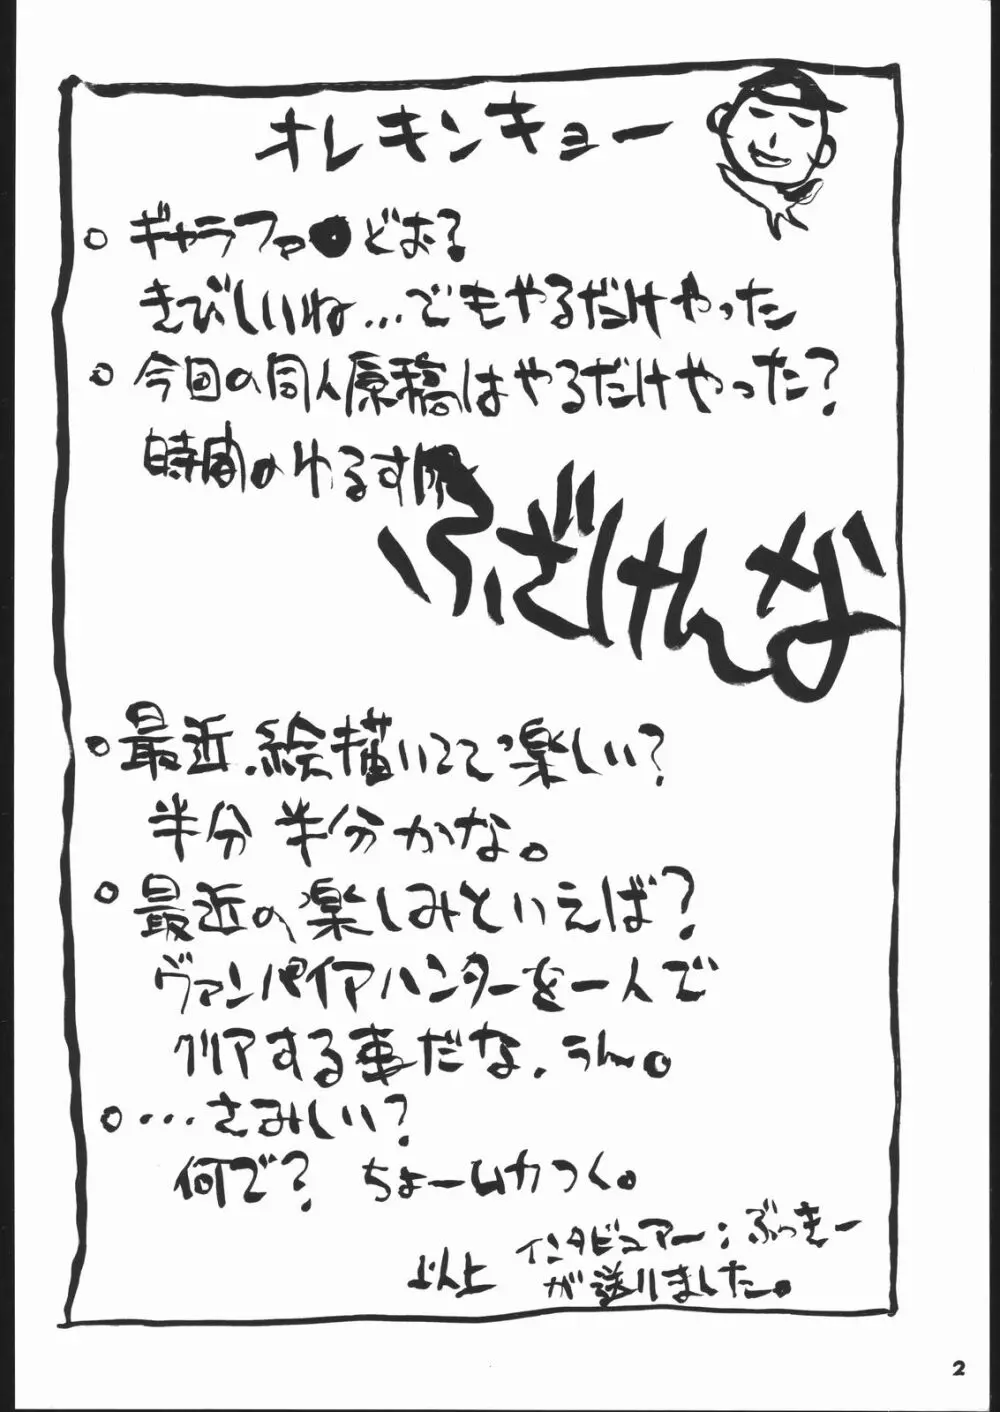 オレキンキョー
○ ギャラファ●どお?
きびしいね…でもやるだけやった
○ 今回の同人原稿はやるだけやった?
時間のゆるす限
ふざけんな
○ 最近、絵描いてて楽しい?
半分半分かな。
○ 最近の楽しみといえば?
ヴァンパイアハンターを一人で
クリアする事だな、うん。
○ …さみしい?
何で? ちょームカつく。
以上 インタビュアー:ぶっきー
が送りました。
2